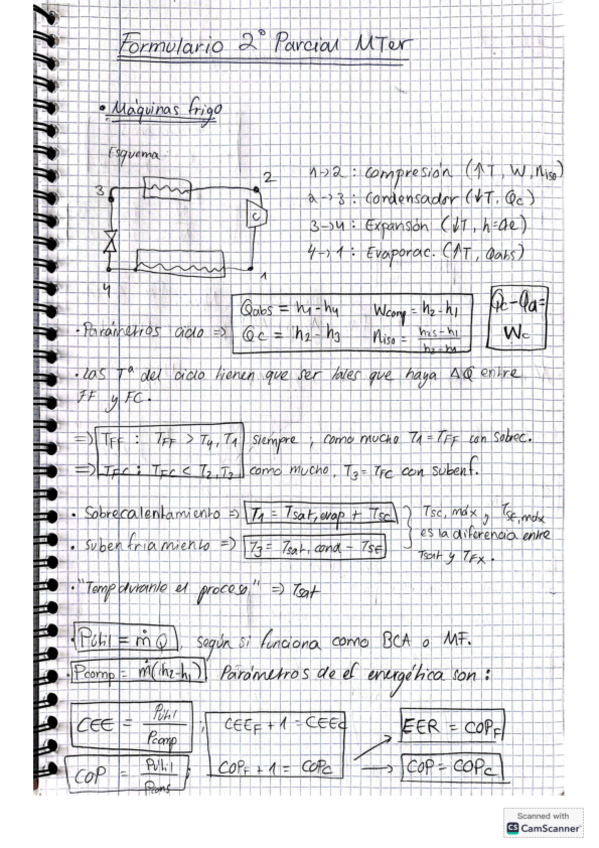 Formulario 2º Parcial MTer
• Máquinas frigo
Esquema
1→2 : compresión (↑T, W, ηiso)
2→3 : Condensador (↓T, Qc)
3→4 : Expansión (↓T, h=cte)
4→1 : Evaporac. (↑T, Qabs)
3 2 C 4 1
· Parámetros ciclo ⇒
Qabs = h1-h4 Wcomp = h2-h1
Qc = h2-h3 ηiso = h2s-h1 / h2-h1
Qc-Qa= Wc
· Las Tª del ciclo tienen que ser tales que haya ΔQ entre
FF y FC.
⇒ TFF : TFF > T4, T1 siempre, como mucho T1 = TFF con sobrec.
⇒ TFC : TFC < T2, T3 como mucho, T3 = TFC con subenf.
· Sobrecalentamiento ⇒ T1 = Tsat, evap + Tsc
· Subenfriamiento ⇒ T3 = Tsat, cond - TSE
Tsc, máx y TSE, máx
es la diferencia entre
Tsat y TFX.
· "Temp durante el proceso" ⇒ Tsat
· Pútil = ṁ Q , según si funciona como BCA o MF.
· Pcomp = ṁ(h2-h1) Parámetros de ef energética son :
CEE = Pútil / Pcomp ; CEEF + 1 = CEEC
EER = COPF
COP = Pútil / Pcons ; COPF + 1 = COPC → COP = COPC
Scanned with
CS CamScanner